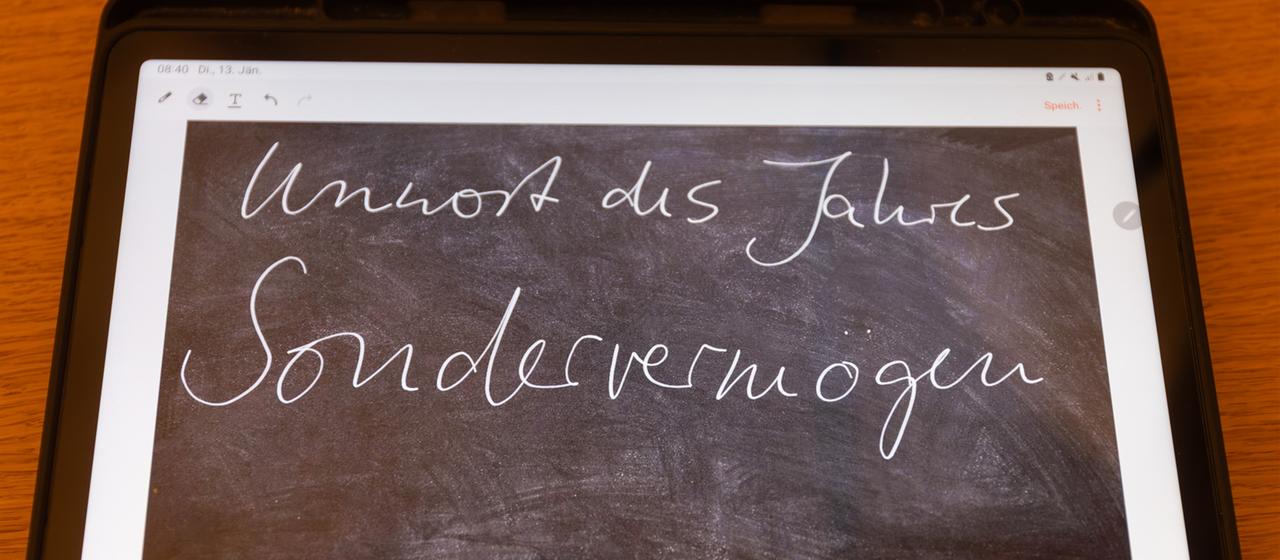 08:40 Di., 13. Jän.
T
Speich.
Unwort des Jahres
Sondervermögen